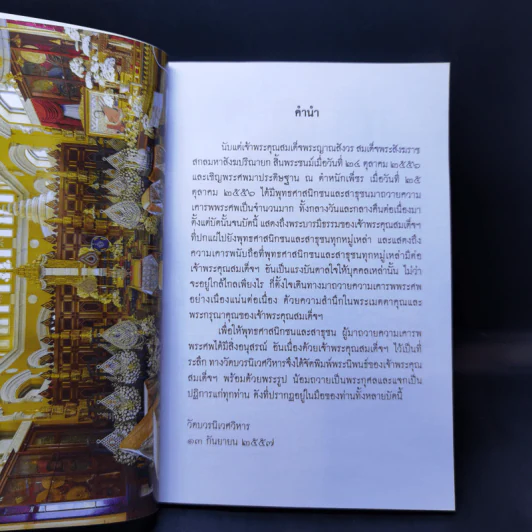 คำนำ
นับแต่เจ้าพระคุณสมเด็จพระญาณสังวร สมเด็จพระสังฆราช
สกลมหาสังฆปริณายก สิ้นพระชนม์เมื่อวันที่ ๒๔ ตุลาคม ๒๕๕๖
และเชิญพระศพมาประดิษฐาน ณ ตำหนักเพ็ชร เมื่อวันที่ ๒๕
ตุลาคม ๒๕๕๖ ได้มีพุทธศาสนิกชนและสาธุชนมาถวายความ
เคารพพระศพเป็นจำนวนมาก ทั้งกลางวันและกลางคืนต่อเนื่องมา
ตั้งแต่บัดนั้นจนบัดนี้ แสดงถึงพระบารมีธรรมของเจ้าพระคุณสมเด็จฯ
ที่ปกแผ่ไปยังพุทธศาสนิกชนและสาธุชนทุกหมู่เหล่า และแสดงถึง
ความเคารพนับถือที่พุทธศาสนิกชนและสาธุชนทุกหมู่เหล่ามีต่อ
เจ้าพระคุณสมเด็จฯ อันเป็นแรงบันดาลใจให้บุคคลเหล่านั้น ไม่ว่า
จะอยู่ใกล้ไกลเพียงไร ก็ตั้งใจเดินทางมาถวายความเคารพพระศพ
อย่างเนืองแน่นต่อเนื่อง ด้วยความสำนึกในพระเมตตาคุณและ
พระกรุณาคุณของเจ้าพระคุณสมเด็จฯ
เพื่อให้พุทธศาสนิกชนและสาธุชน ผู้มาถวายความเคารพ
พระศพได้มีสิ่งอนุสรณ์ อันเนื่องด้วยเจ้าพระคุณสมเด็จฯ ไว้เป็นที่
ระลึก ทางวัดบวรนิเวศวิหารจึงได้จัดพิมพ์พระนิพนธ์ของเจ้าพระคุณ
สมเด็จฯ พร้อมด้วยพระรูป น้อมถวายเป็นพระกุศลและแจกเป็น
ปฏิการแก่ทุกท่าน ดังที่ปรากฏอยู่ในมือของท่านทั้งหลายบัดนี้
วัดบวรนิเวศวิหาร
๑๓ กันยายน ๒๕๕๗